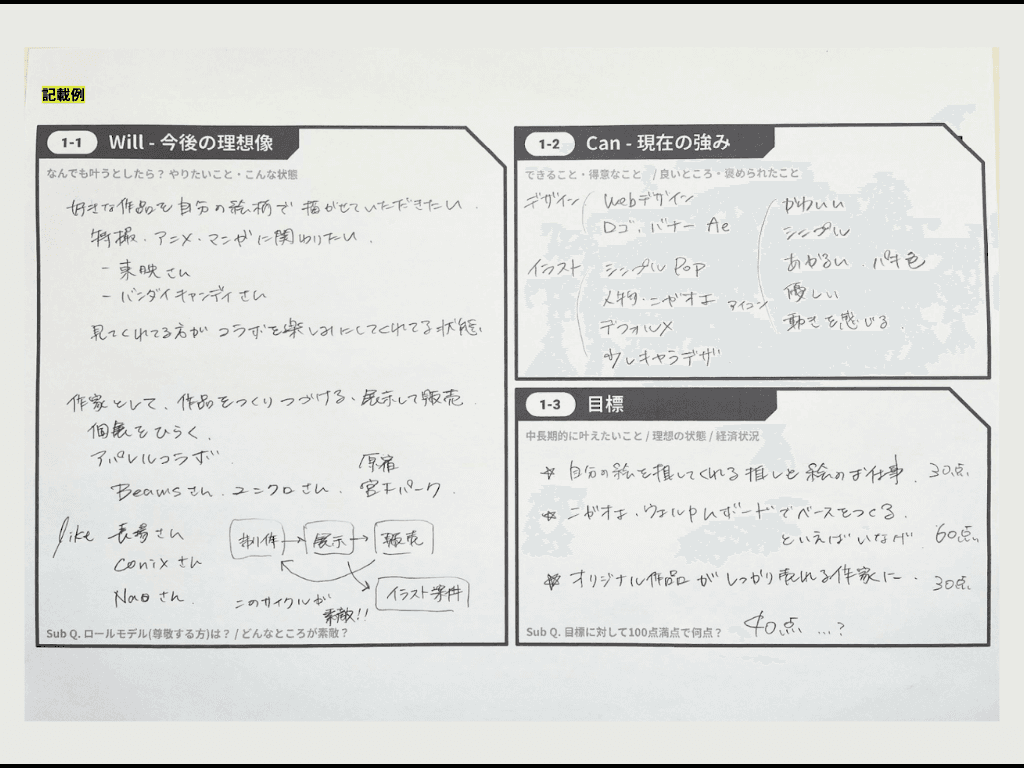 記載例
1-1 Will - 今後の理想像
なんでも叶うとしたら？ やりたいこと・こんな状態
好きな作品を自分の絵柄で描かせていただきたい。
特撮・アニメ・マンガに関わりたい。
- 東映さん
- バンダイキャンディさん
見てくれてる方がコラボを楽しみにしてくれてる状態。
作家として、作品をつくりつづける、展示して販売
個展をひらく。
アパレルコラボ
Beamsさん、ユニクロさん、原宿 宮下パーク。
like 長場さん
conixさん
Naoさん
制作 → 展示 → 販売
イラスト案件
このサイクルが
素敵!!
Sub Q. ロールモデル(尊敬する方)は？ / どんなところが素敵？
1-2 Can - 現在の強み
できること・得意なこと / 良いところ・褒められたこと
デザイン Webデザイン
ロゴ、バナー Ae
イラスト シンプル Pop
人物・ニガオエ アイコン
デフォルメ
ウレキャラデザ
かわいい
シンプル
あかるい、パキ色
優しい
動きを感じる。
1-3 目標
中長期的に叶えたいこと / 理想の状態 / 経済状況
☆ 自分の絵を推してくれる推しと絵のお仕事。30点。
☆ ニガオエ、ウェルカムボードでベースをつくる。
といえばいなげ 60点。
☆ オリジナル作品がしっかり売れる作家に。30点。
Sub Q. 目標に対して100点満点で何点？ 40点 …?